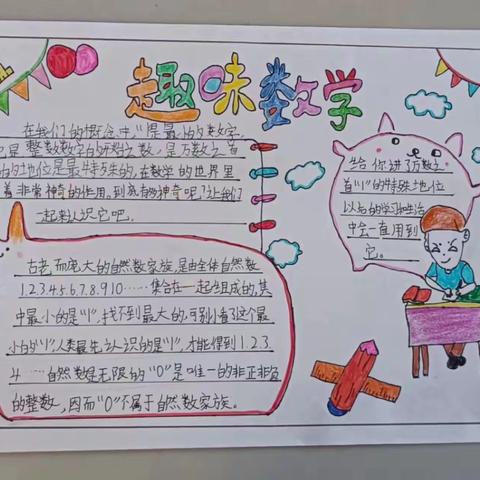 趣味数学
在我们的概念中,"1"是最小的数字,
是整数数字的开始之数,是万数之首
的地位是最特殊的,在数学的世界里
着非常神奇的作用。到底有多神奇呢?让我们
一起来认识它吧。
给你讲了万数之
首"1"的特殊地位
以后的学习和生活
中会一直用到
它。
古老而庞大的自然数家族,是由全体自然数
1.2.3.4.5.6.7.8.9.10……集合在一起组成的,其
中最小的是"1",找不到最大的,可别小看了这个最
小的"1",人类最先认识的是"1",才能得到1.2.3.
4……自然数是无限的"0"是唯一的非正非负
的整数,因而"0"不属于自然数家族。